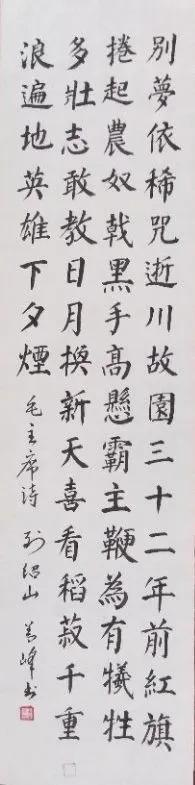 別夢依稀咒逝川故園三十二年前紅旗
捲起農奴戟黑手高懸霸主鞭為有犧牲
多壯志敢教日月換新天喜看稻菽千重
浪遍地英雄下夕煙 毛主席诗 到韶山 善峰书